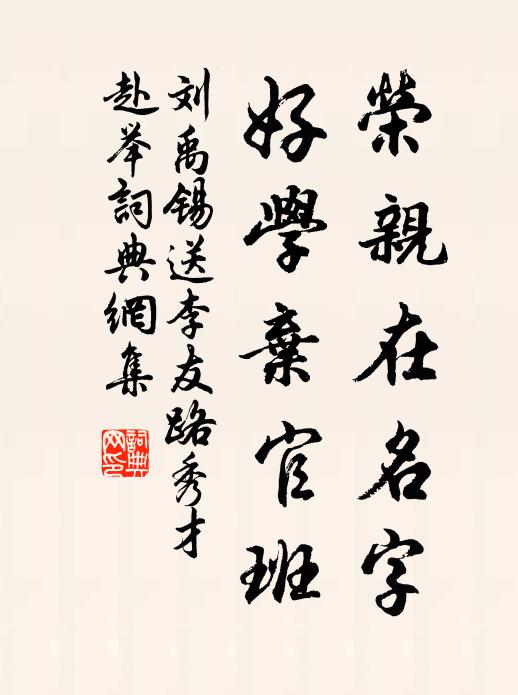 榮親在名字
好學棄官班
刘禹锡送李友路秀才
赴举詞典網集
詞典
网印